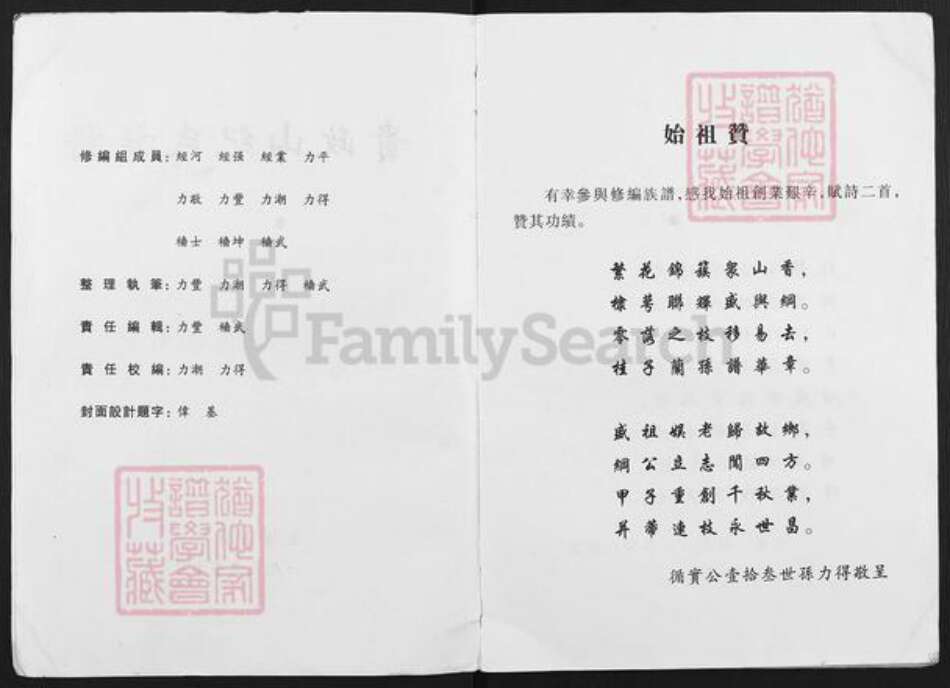 修編組成員：經河 經張 經業 力平
力敢 力豐 力潮 力得
榆士 榆坤 榆武
整理執筆：力豐 力潮 力得 榆武
責任編輯：力豐 榆武
責任校編：力潮 力得
封面設計題字：偉 基
猶他家
譜學會
收藏
FamilySearch
始祖贊
有幸參與修編族譜，感我始祖創業艱辛，賦詩二首，
贊其功績。
繁花錦簇眾山香，
棣萼聯輝盛與綱。
零落之枝移易去，
桂子蘭孫譜華章。
盛祖娛老歸故鄉，
綱公立志聞四方。
甲子重創千秋業，
并蒂連枝永世昌。
循實公壹拾叁世孫力得敬呈
猶他家
譜學會
收藏